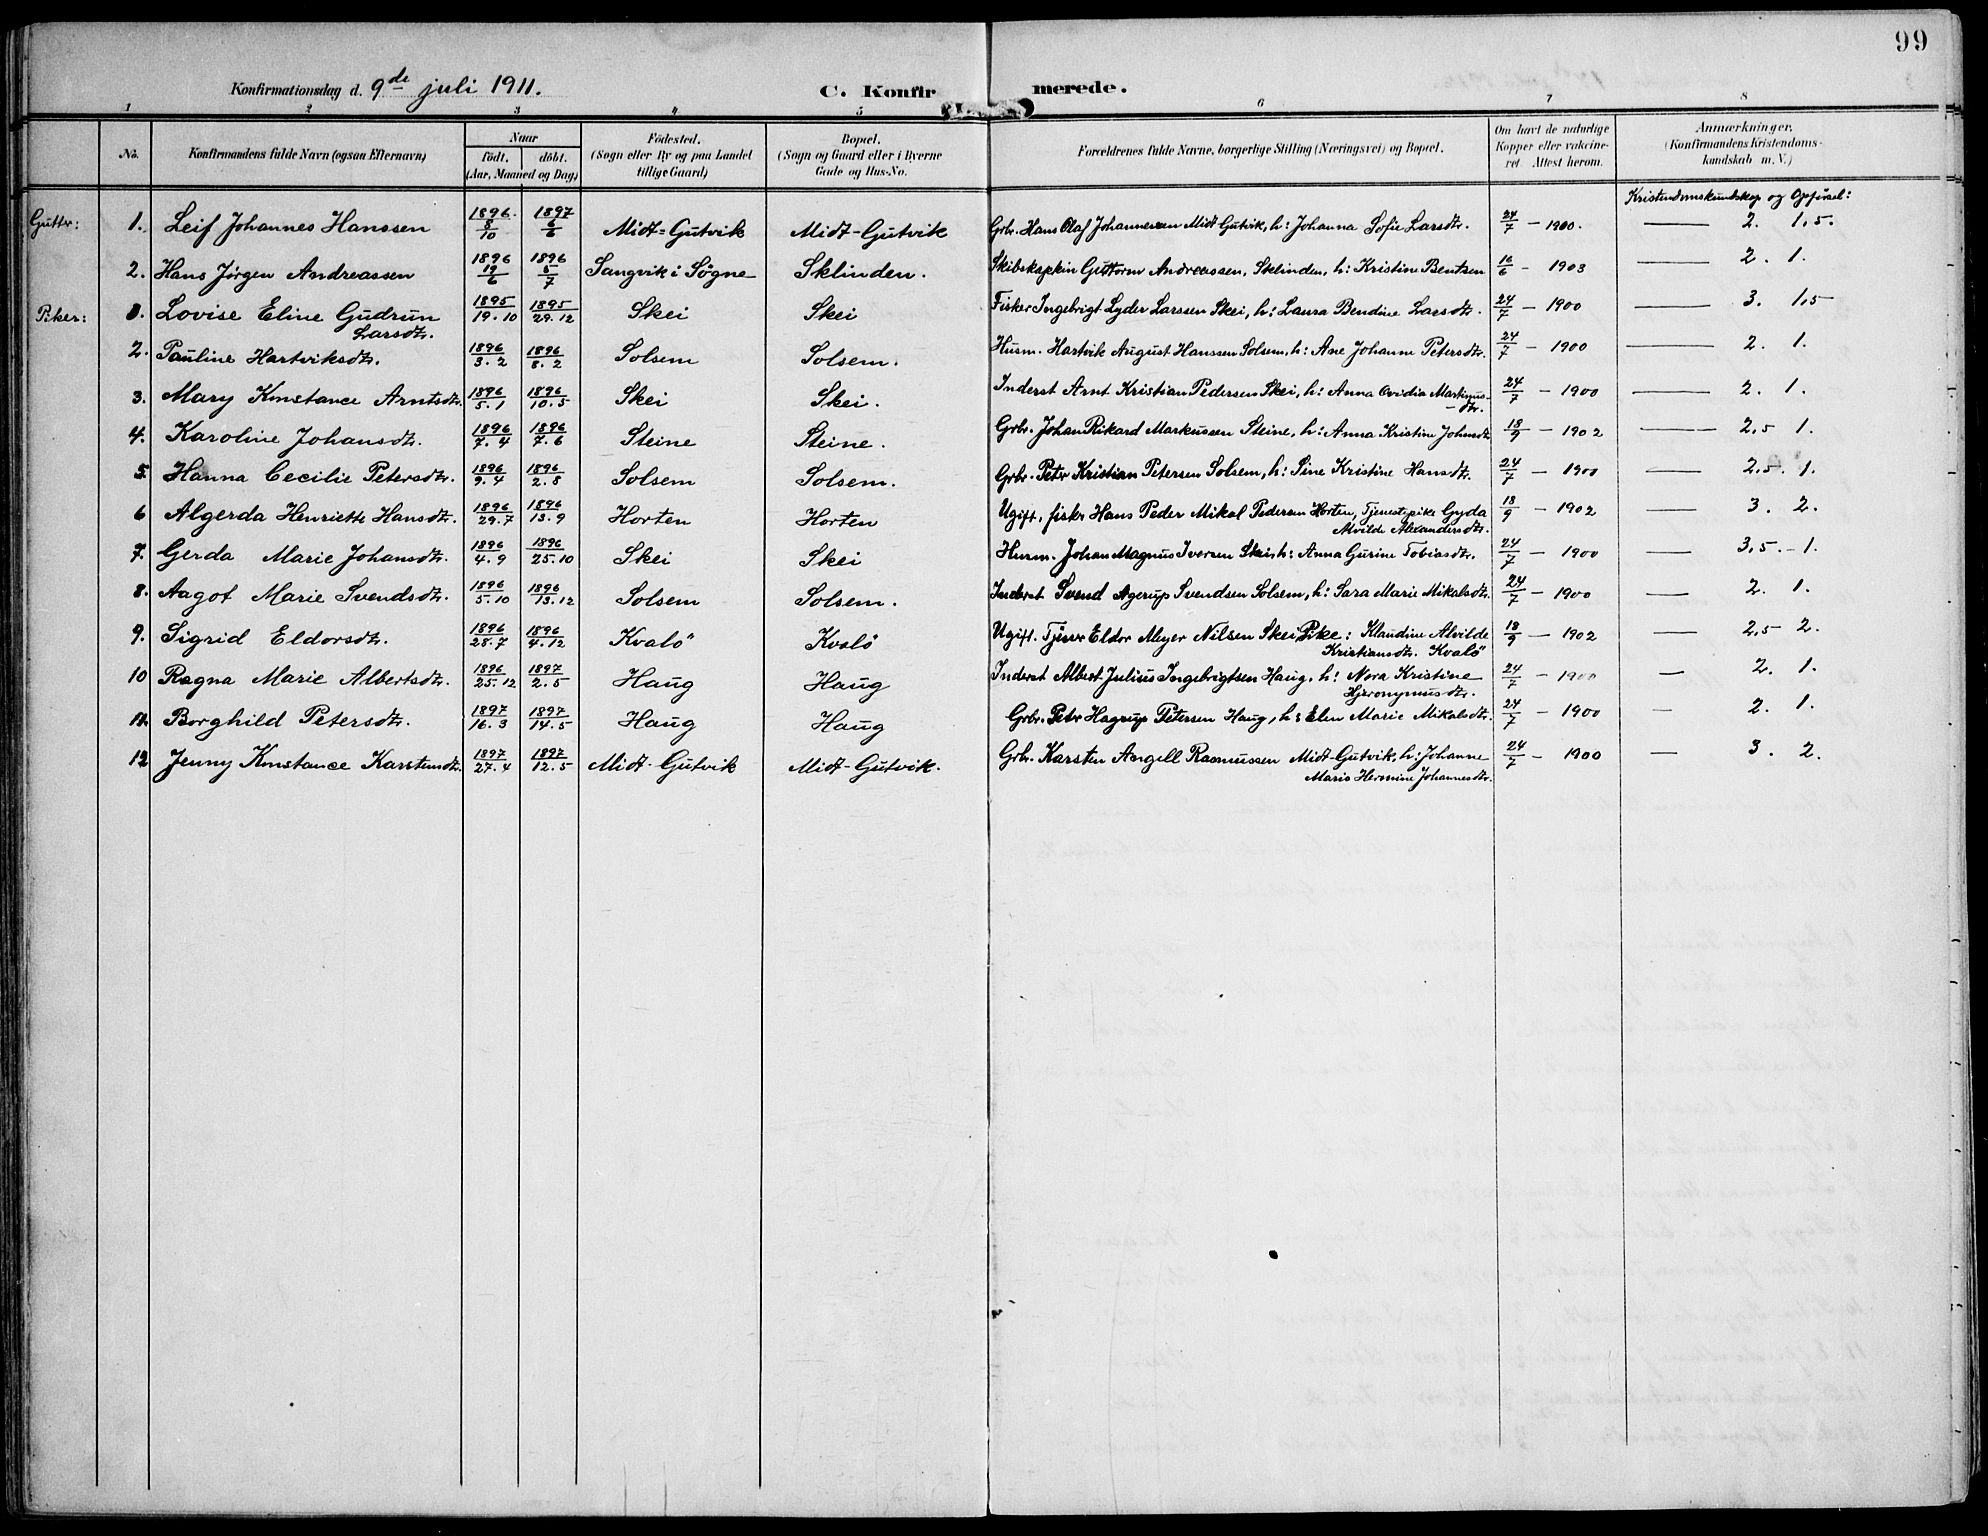 99
Konfirmationsdag d. 9de juli 1911. C. Konfirmerede.
1 2 3 4 5 6 7 8
No. Konfirmandens fulde Navn (ogsaa Efternavn) Naar født. døbt. (Aar, Maaned og Dag) Fødested. (Sogn eller By og paa Landet tillige Gaard) Bopæl. (Sogn og Gaard eller i Byerne Gade og Hus-No. Forældrenes fulde Navne, borgerlige Stilling (Næringsvei) og Bopæl. Om havt de naturlige Kopper eller vakcineret. Attest herom. Anmærkninger. (Konfirmandens Kristendomskundskab m. V.)
Kristendomskundskap og Opførsel:
Gutter: 1. Leif Johannes Hanssen 1896 8/10 1897 6/6 Midt=Gutvik Midt-Gutvik Grbr. Hans Olaf Johannesen Midt Gutvik, h: Johanna Sofie Larsdtr. 24/7 - 1900. — 2. 1,5.
2. Hans Jørgen Andreassen 1896 19/6 1896 5/7 Sangvik i Søgne Sklinden. Skibskaptein Guttorm Andreassen, Sklinden, h: Kristine Bentzen 16/6 - 1903 — 2. 1.
Piker: 1. Lovise Eline Gudrun 1895 19.10 1895 29.12 Skei Skei Fisker Ingebrigt Lyder Larssen Skei, h: Laura Bendine Larsdtr. 24/7 - 1900 — 3. 1,5
Larsdtr.
2. Pauline Hartviksdtr. 1896 3.2 1896 8.2 Solsem Solsem. Husm. Hartvik August Hanssen Solsem, h: Ane Johanne Petersdtr. 24/7 - 1900 — 2. 1.
3. Mary Konstance Arntsdtr. 1896 5.1 1896 10.5 Skei Skei. Inderst Arnt Kristian Pedersen Skei, h: Anna Ovidia Martinus-
dtr. 24/7 - 1900 — 2. 1.
4. Karoline Johansdtr. 1896 7.4 1896 7.6 Steine Steine. Grbr. Johan Rikard Markussen Steine, h: Anna Kristine Johnsdtr 18/9 - 1902 — 2,5 1.
5. Hanna Cecilie Petersdtr. 1896 9.4 1896 2.8 Solsem Solsem. Grbr. Peter Kristian Petersen Solsem, h: Sine Kristine Hansdtr. 24/7 - 1900 — 2,5. 1.
6 Algerda Henriette Hansdtr. 1896 29.7 1896 13.9 Horten Horten Ugift, fisker Hans Peder Mikal Pedersen Horten, Tjenestepike Gyda
Alvilde Alexandersdtr. 18/9 - 1902 — 3. 2.
7. Gerda Marie Johansdtr. 1896 4.9 1896 25.10 Skei Skei Husm. Johan Magnus Iversen Skei, h: Anna Gurine Tobiasdtr. 24/7 - 1900 — 3,5. - 1.
8. Aagot Marie Svendsdtr. 1896 5.10 1896 13.12 Solsem Solsem. Inderst Svend Agerup Svendsen Solsem, h: Sara Marie Mikalsdtr. 24/7 - 1900 — 2. 1.
9. Sigrid Eldorsdtr. 1896 28.7 1896 4.12 Kvalö Kvalö Ugift. Tjener Eldor Meyer Nilsen Skei, Pike: Klaudine Alvilde
Kristiansdtr. Kvalö 18/9 - 1902 — 2,5 2.
10 Ragna Marie Albertsdtr. 1896 25.12 1897 2.5 Haug Haug Inderst Albert Julius Ingebrigtsen Haug, h: Nora Kristine
Hjeronymusdtr. 24/7 - 1900 — 2. 1.
11. Borghild Petersdtr. 1897 16.3 1897 14.5 Haug Haug Grbr. Peter Hagrup Petersen Haug, h: Elen Marie Mikalsdtr. 24/7 - 1900 — 2. 1.
12 Jenny Konstance Karstensdtr. 1897 27.4 1897 12.5 Midt-Gutvik Midt-Gutvik. Grbr. Karsten Angell Rasmussen Midt-Gutvik, h: Johanne
Marie Hermine Johannesdtr. 24/7 - 1900 — 3. 2.